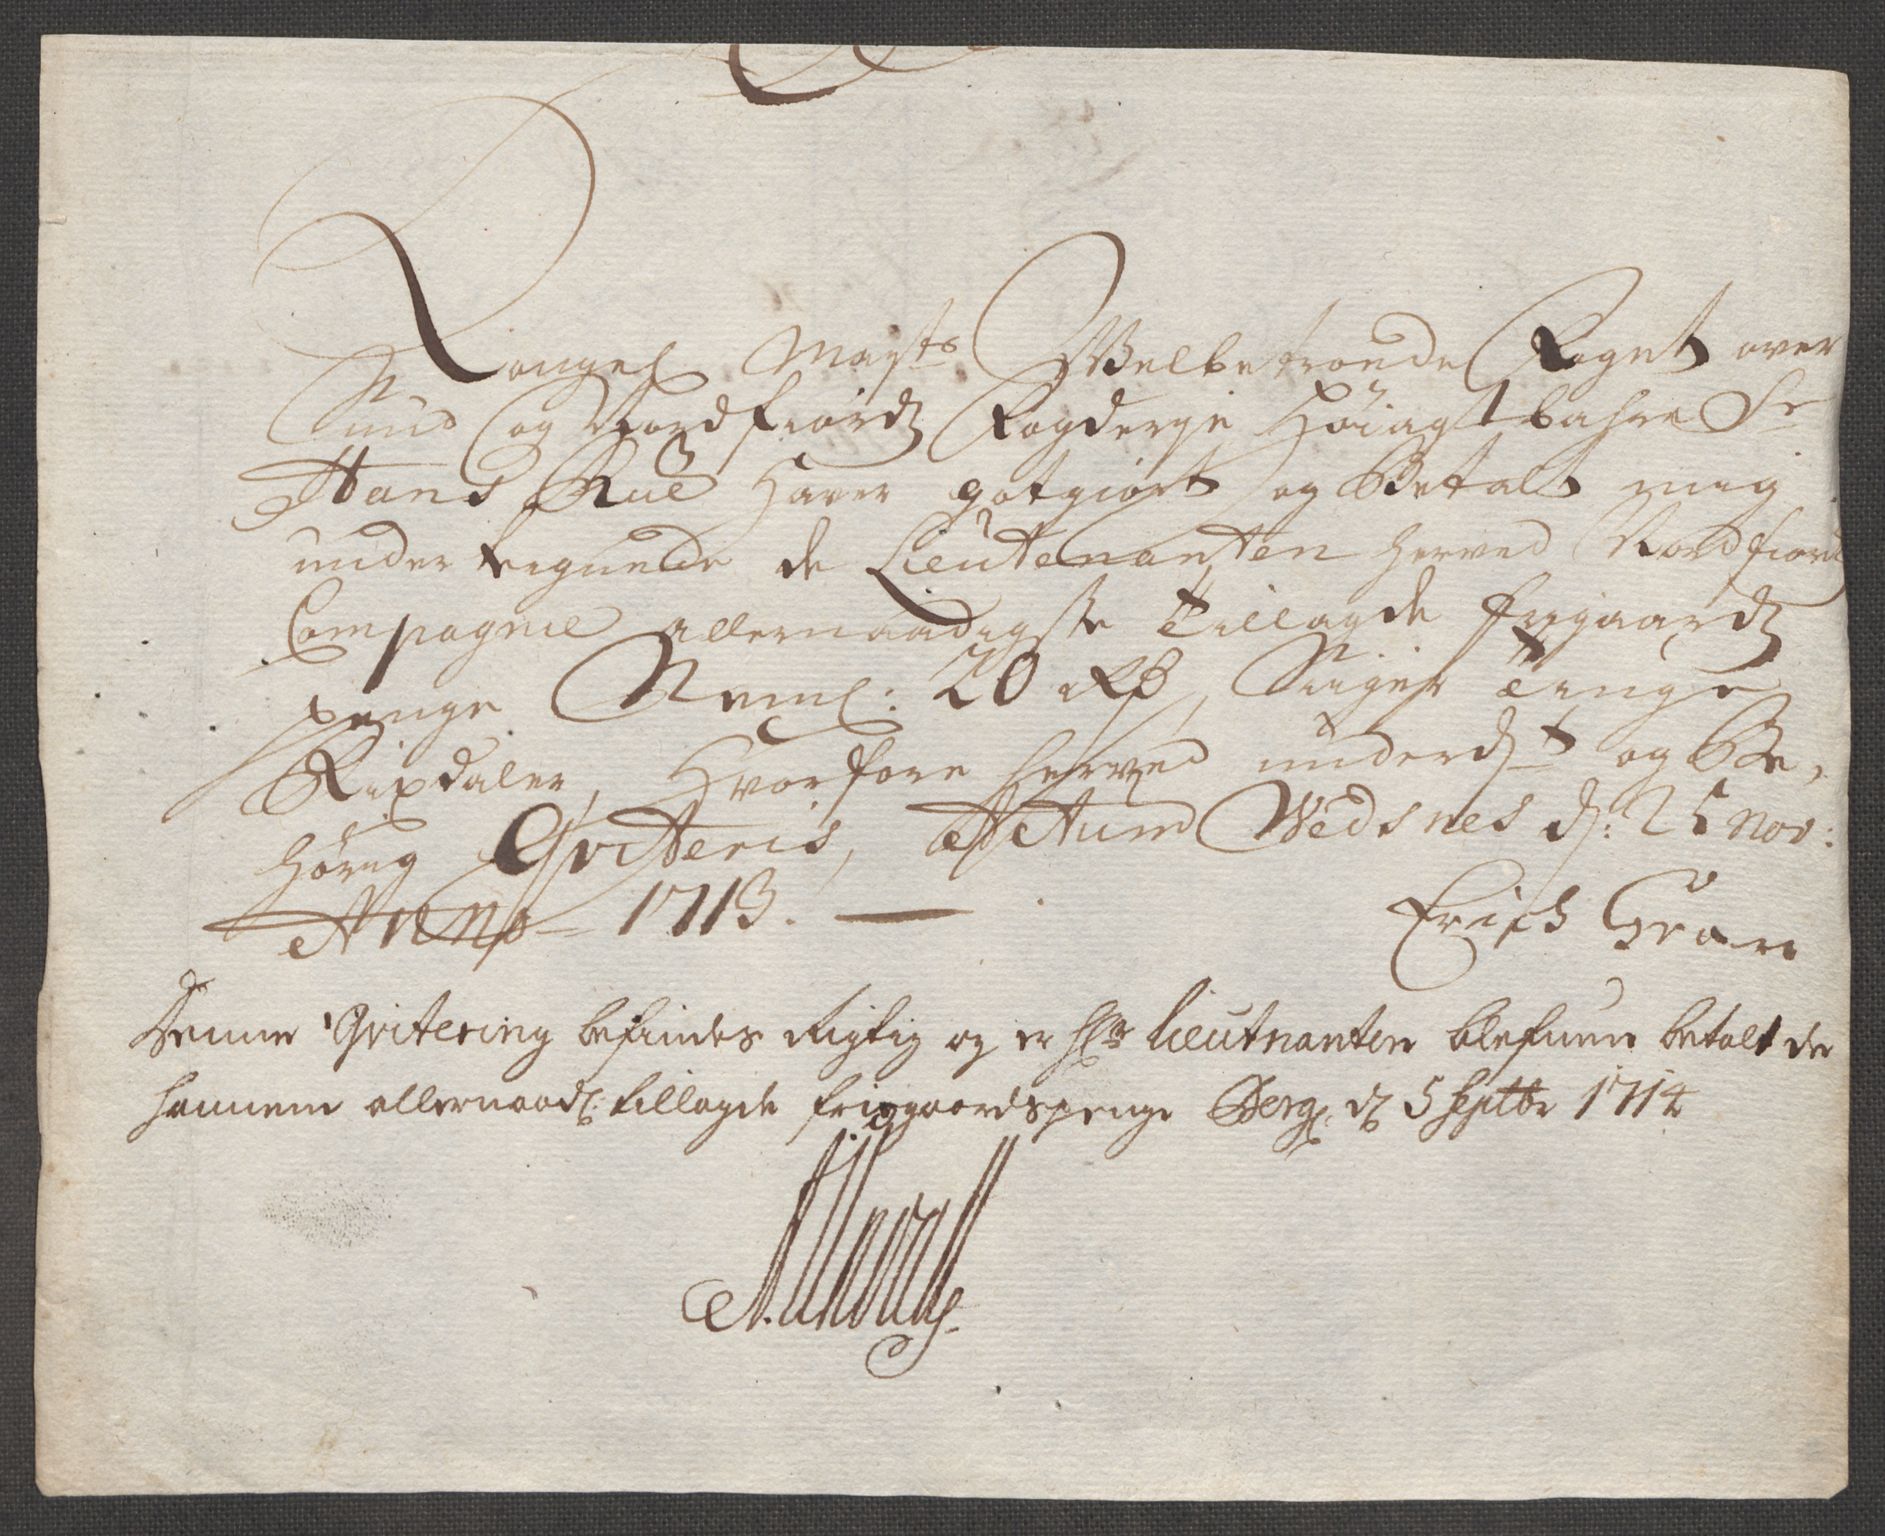 Kongel Mayts Welbetroede Foget over
Sund og Nordfiords Fogderje Høiagtbahre Sr
Hans Rue haver gotgiort og Betalt mig
under tegnede de Lieutenanten herved Nordfiord
Compagnie allernaadigste tillagde frigaards
penge Neml: 20 Rd, Siiger Tiuge
Rixdaler, Hvorfore herved underdt og Be,
hørig Qvitteris, Actum Wedsnes d: 25 Nov:
Anno 1713. —
Erich
Denne Qvitering befindes Rigtig og er Hr Lieutnanten blefuen betalt de
hannem allernaad: tillagde friegaardspenge Berg. d 5 Septbr 1714